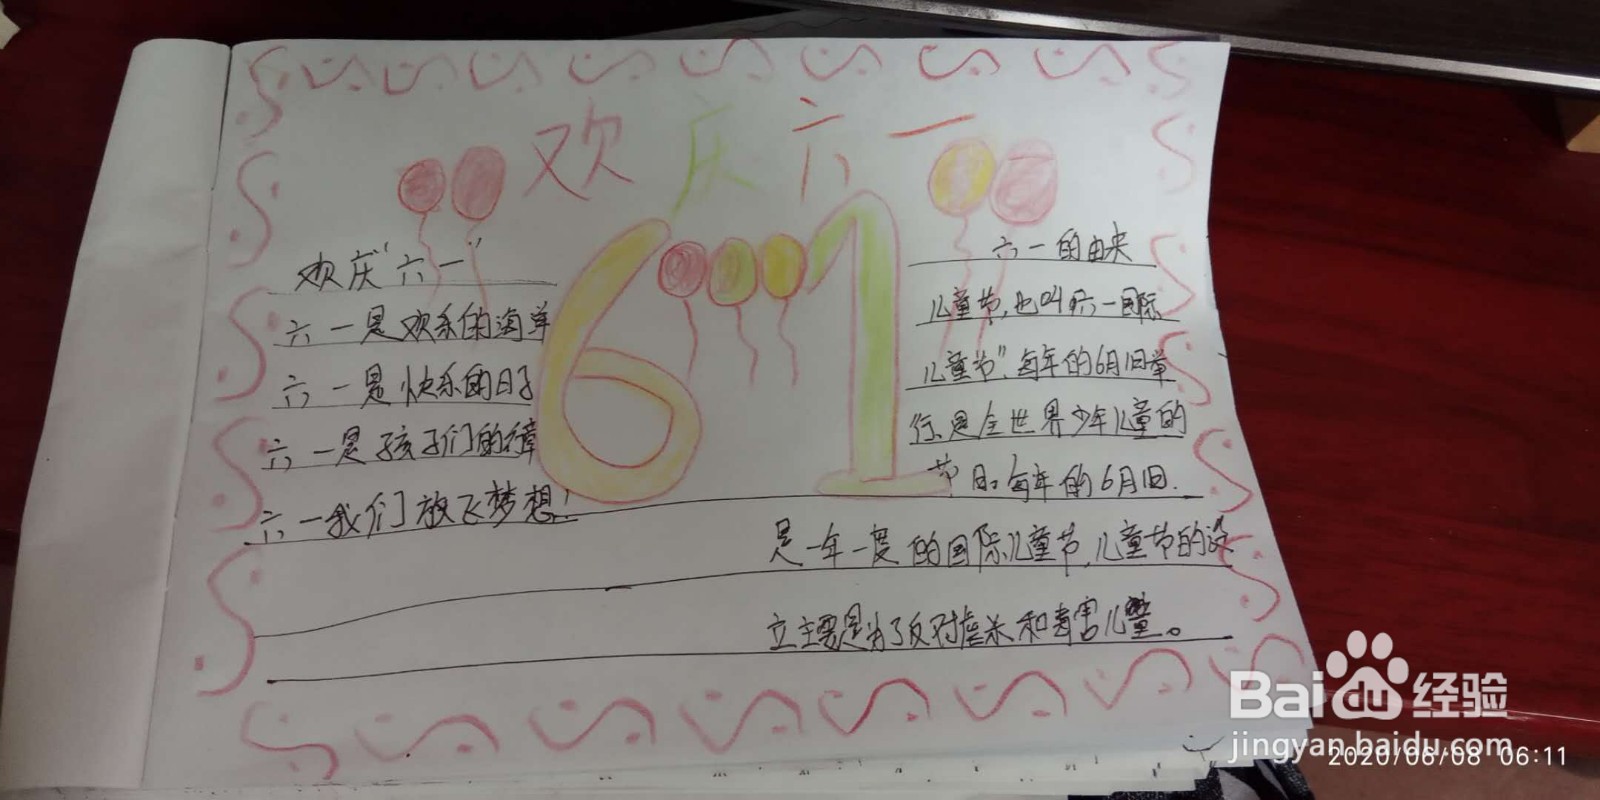 欢庆六一
61
欢庆"六一"
六一是欢乐的海洋
六一是快乐的日子
六一是孩子们的
六一我们放飞梦想!
六一的由来
儿童节,也叫六一国际
儿童节",每年的6月1日举
行.是全世界少年儿童的
节日。每年的6月1日.
是一年一度的国际儿童节,儿童节的设
立主要是为了反对虐杀和毒害儿童。
Baidu经验
jingyan.baidu.com
2020/06/08 06:11